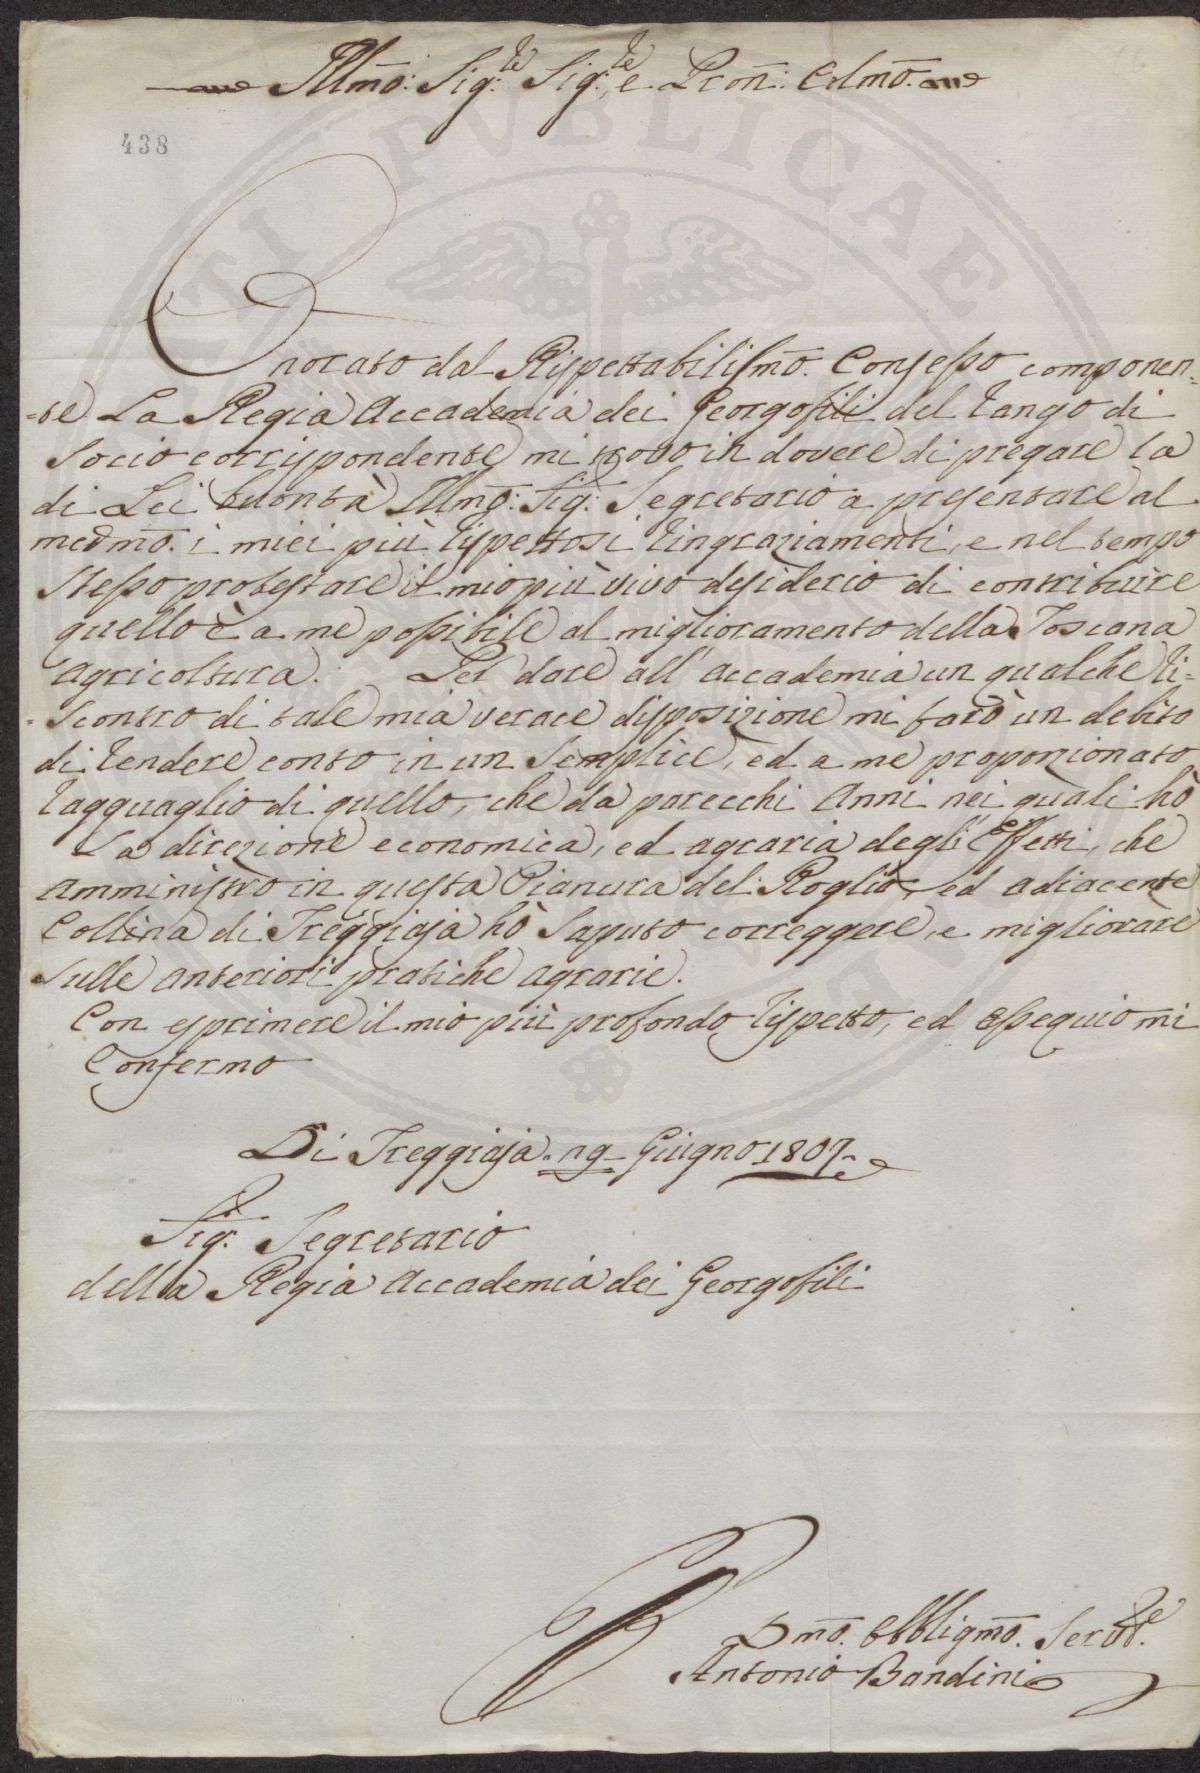 Illmo: Sig:re Sig:re, e Pron: Colmo:
438
Onorato dal Rispettabilissmo. Consesso componen-
-te La Regia Accademia dei Georgofili del rango di
Socio corrispondente mi trovo in dovere di pregare la
di Lei buontà Illmo: Sig: Segretario a presentare al
medmo. i miei più rispettosi ringraziamenti, e nel tempo
stesso protestare il mio più vivo desiderio di contribuire
quello è a me possibile al miglioramento della Toscana
agricoltura. Per dare all' accademia un qualche ri=
=scontro di tale mia verace disposizione mi farò un debito
di rendere conto in un semplice, ed a me proporzionato
ragguaglio di quello, che da parecchi Anni nei quali hò
La direzione economica, ed agraria degli Effetti, che
amministro in questa Pianura del Roglio, ed adiacente
Collina di Treggiaja hò saputo correggere, e migliorare
sulle anteriori pratiche agrarie.
Con esprimere il mio più profondo rispetto, ed ossequio mi
Confermo
Di Treggiaja Giugno 1807.
Sig: Segretario
della Regia Accademia dei Georgofili
Dmo. Obbligmo. Servre.
Antonio Bandini
PVBLICAE